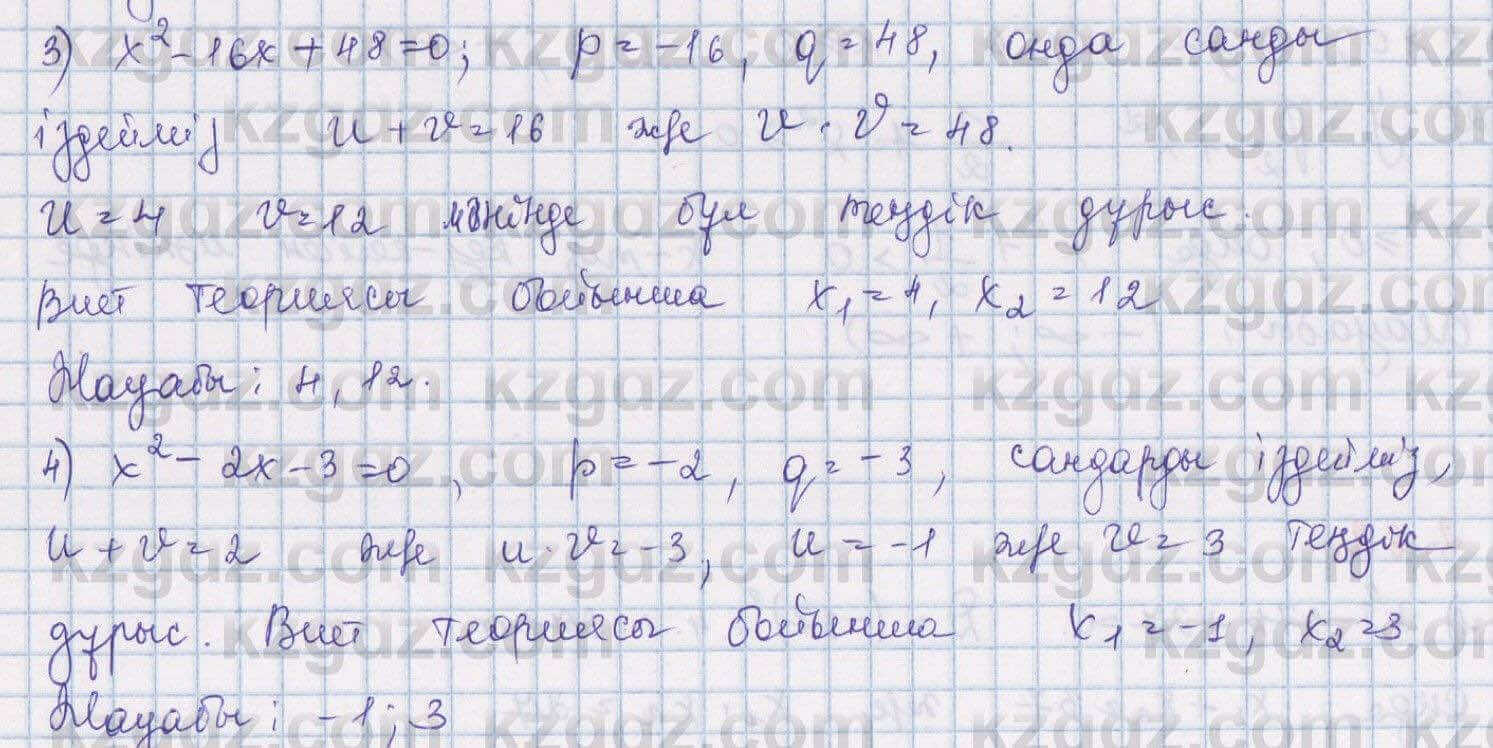 3) x² - 16x + 48 = 0; p = -16, q = 48, онда санды
іздейміз u + v = 16 және u · v = 48.
u = 4 v = 12 мәнінде бұл теңдік дұрыс.
Виет теориясы бойынша x₁ = 4, x₂ = 12
Жауабы: 4, 12.
4) x² - 2x - 3 = 0, p = -2, q = -3, сандарды іздейміз,
u + v = 2 және u · v = -3, u = -1 және v = 3 теңдік
дұрыс. Виет теориясы бойынша x₁ = -1, x₂ = 3
Жауабы: -1; 3
kzgdz.com